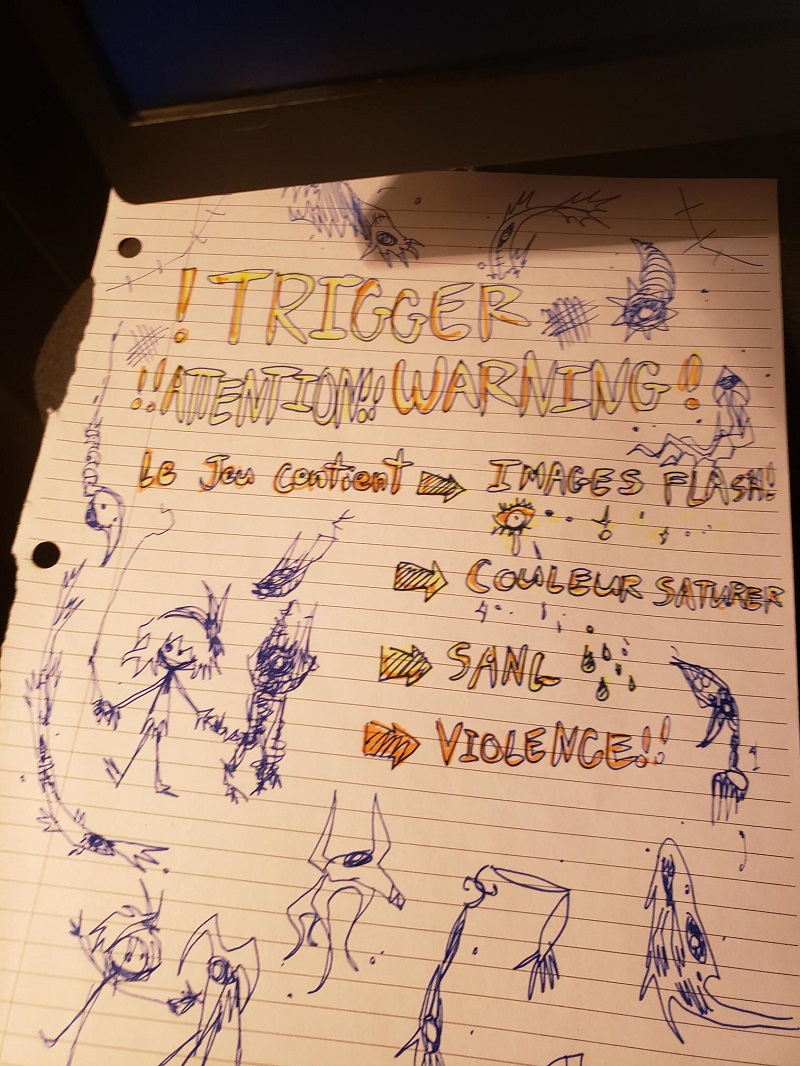 ! TRIGGER
!! ATTENTION!! WARNING !!
LE Jeu contient IMAGES FLASH!
COULEUR SATURER
SANG
VIOLENCE!!